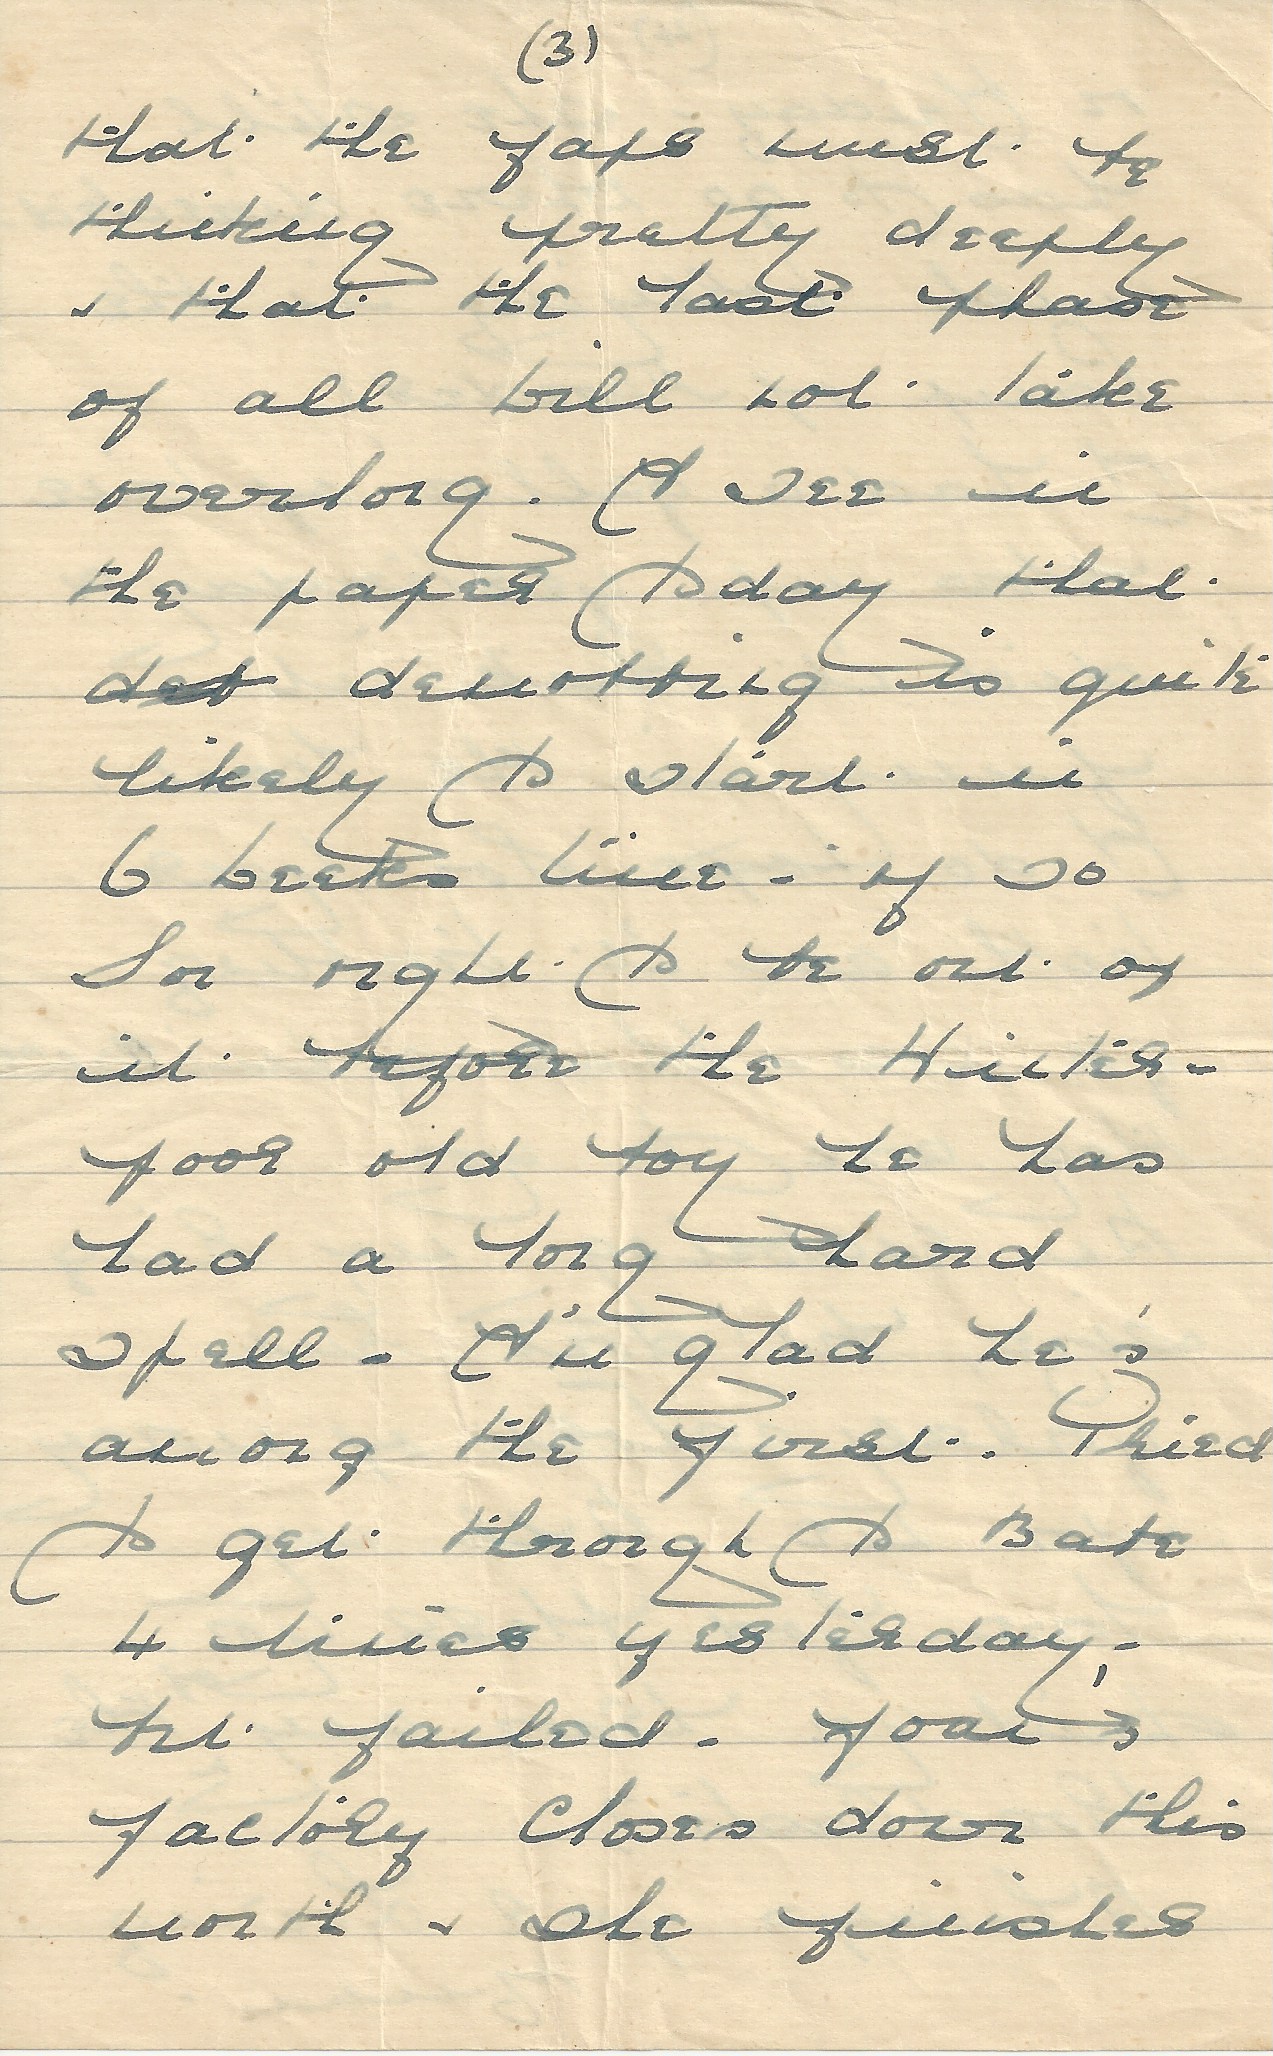 (3)
that the Japs must be
thinking pretty deeply
& that the last phase
of all will not take
overlong. I see in
the paper today that
demobbing is quite
likely to start in
6 weeks time - if so
ought to be out of
it before the Winter -
poor old boy he has
had a long hard
spell - I'm glad he's
among the first. Tried
to get through to Babe
4 times yesterday -
but failed - Joan's
factory closes down this
month & she finishes